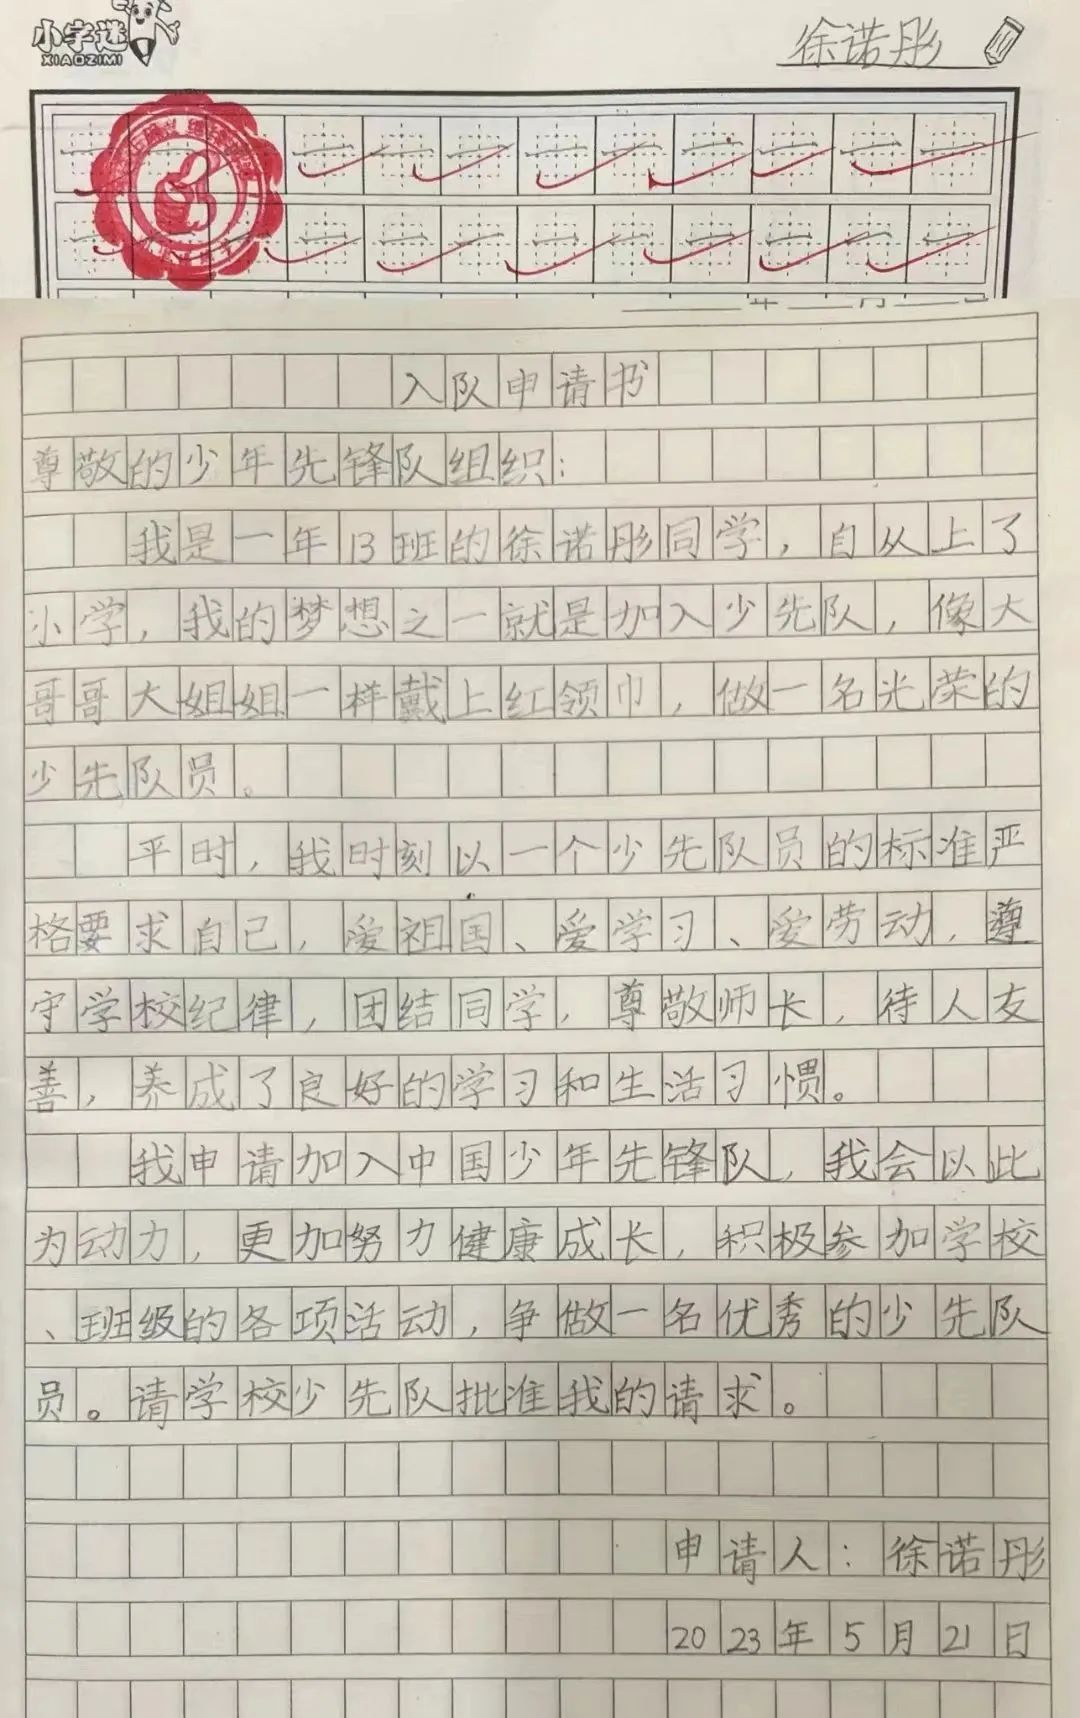 小字迷
XIAOZIMI
徐诺彤
一 一 一 一 一 一 一 一 一 一
一 一 一 一 一 一 一 一 一 一
年 月
入队申请书
尊敬的少年先锋队组织：
我是一年13班的徐诺彤同学，自从上了
小学，我的梦想之一就是加入少先队，像大
哥哥大姐姐一样戴上红领巾，做一名光荣的
少先队员。
平时，我时刻以一个少先队员的标准严
格要求自己，爱祖国、爱学习、爱劳动，遵
守学校纪律，团结同学，尊敬师长，待人友
善，养成了良好的学习和生活习惯。
我申请加入中国少年先锋队，我会以此
为动力，更加努力健康成长，积极参加学校
、班级的各项活动，争做一名优秀的少先队
员。请学校少先队批准我的请求。
申请人：徐诺彤
2023年5月21日